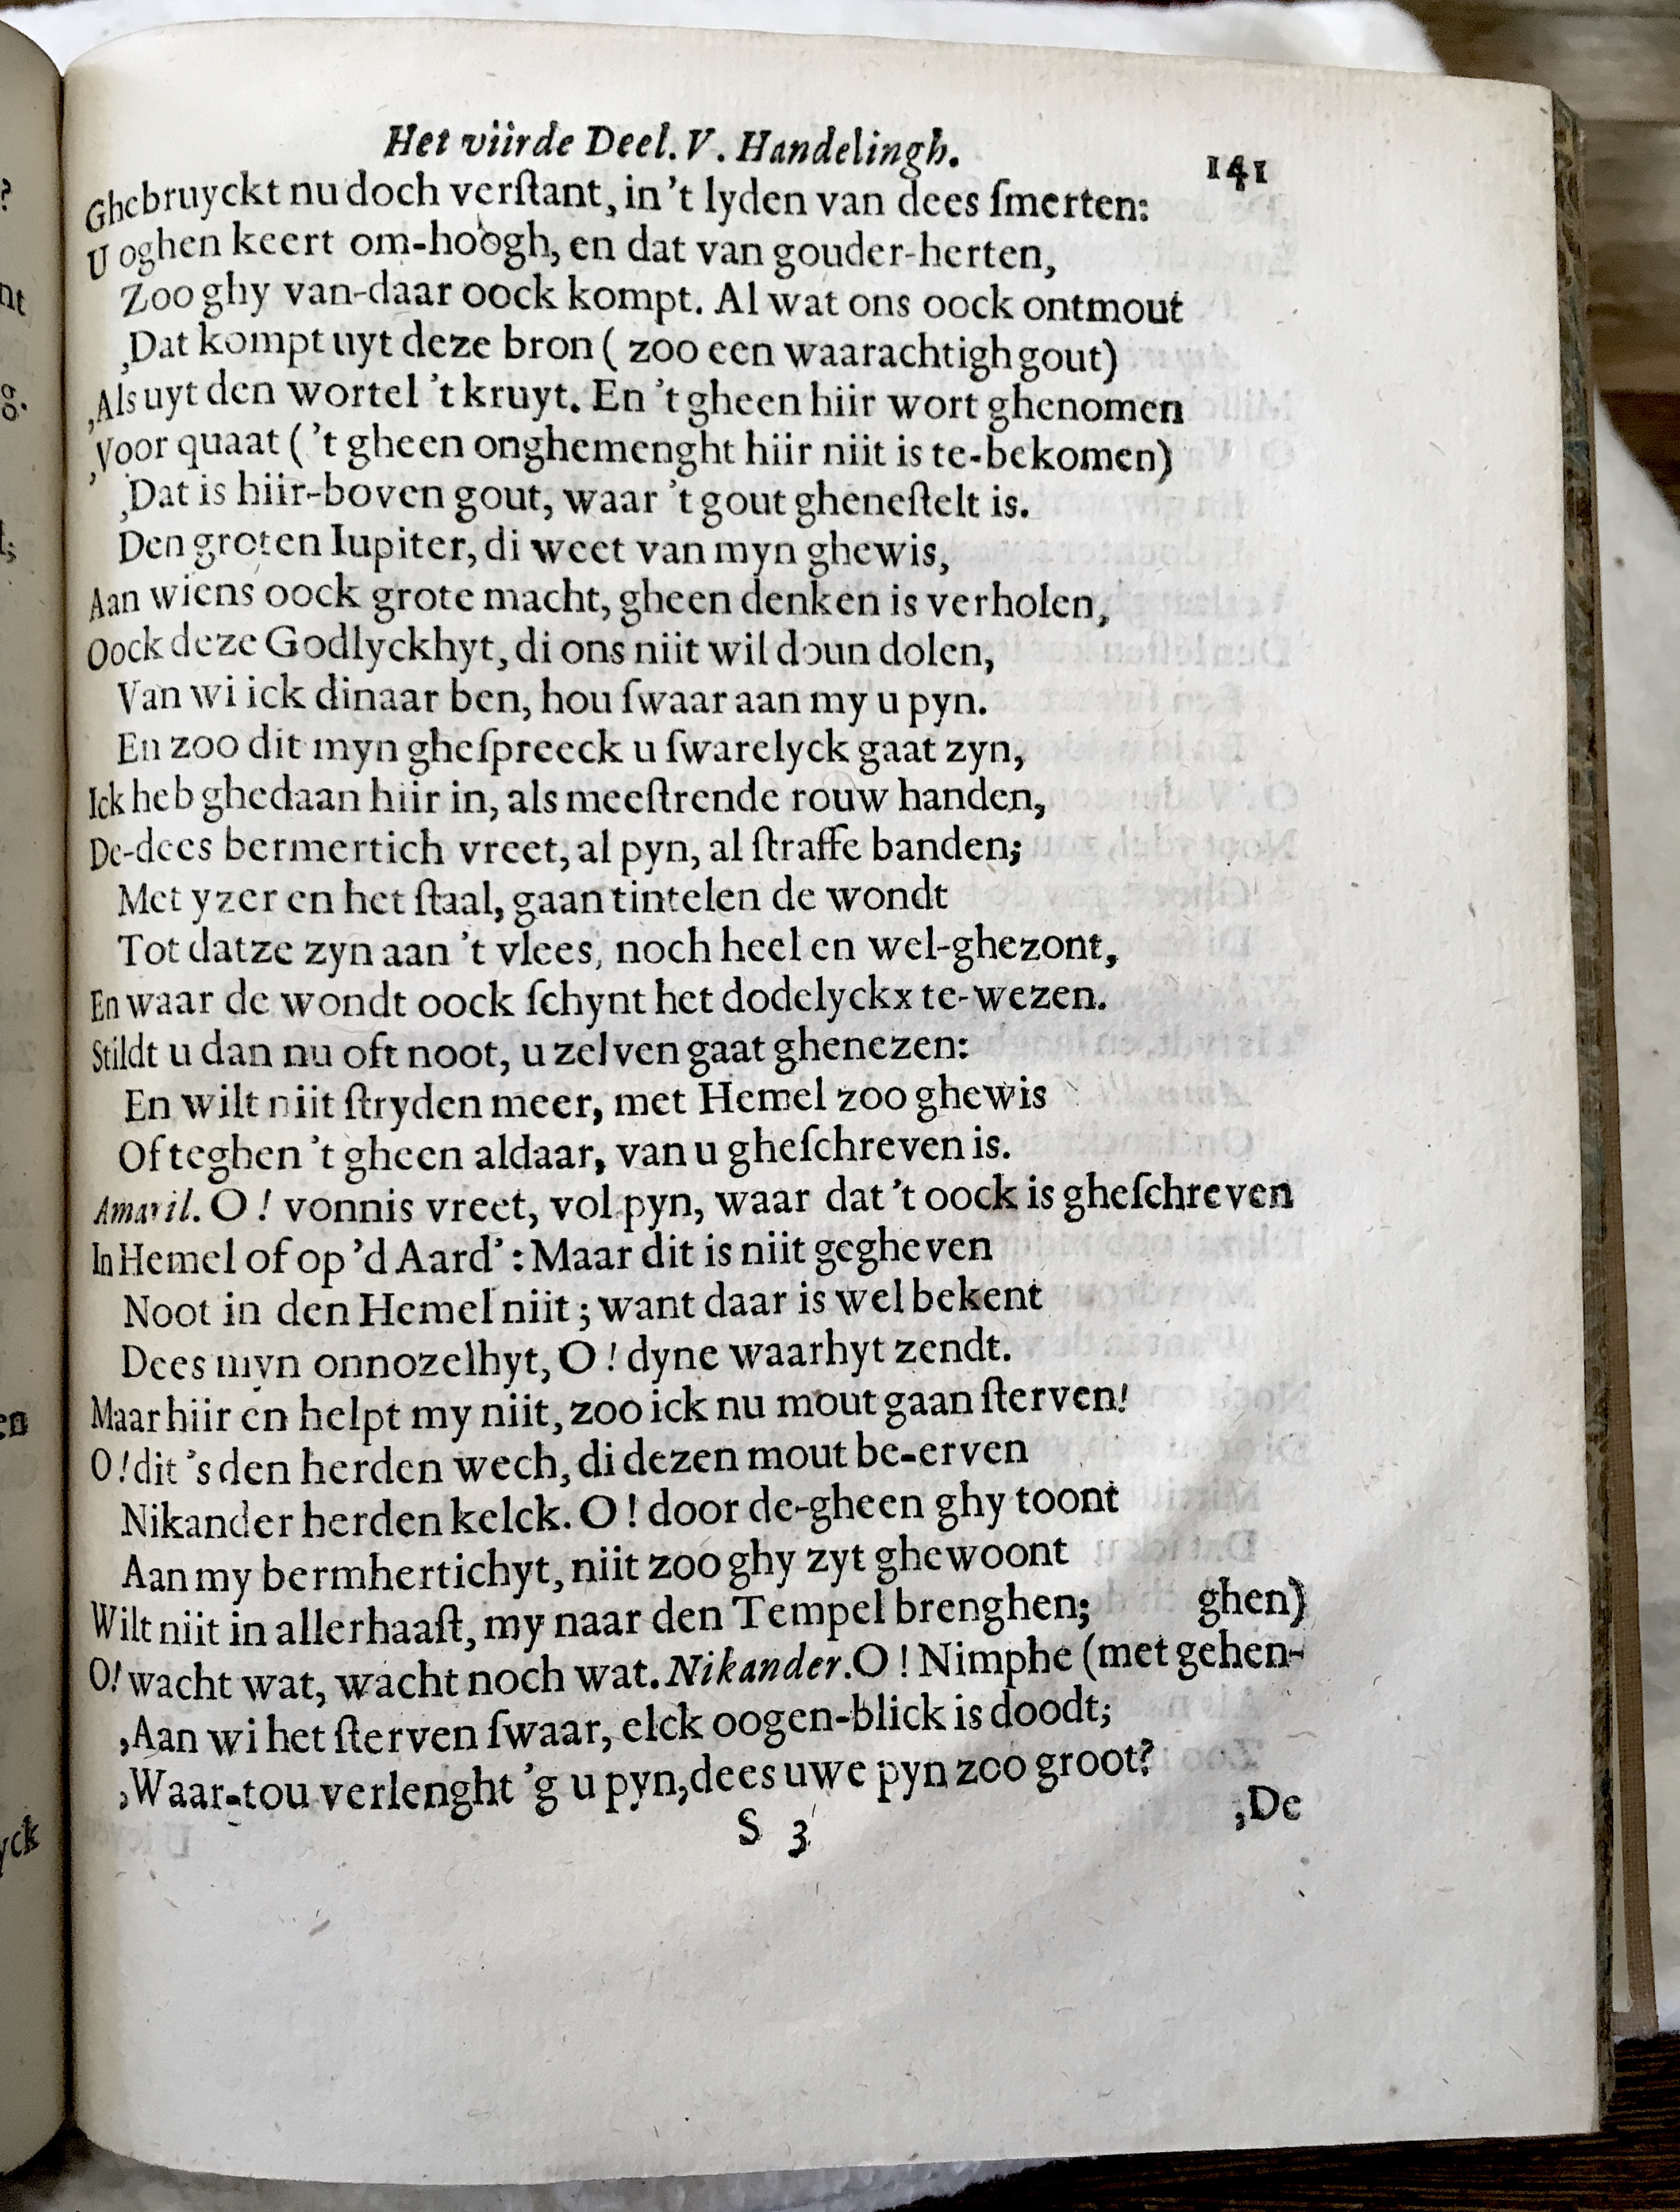 Het viirde Deel. V. Handelingh. 141
Ghebruyckt nu doch verſtant, in 't lyden van dees ſmerten:
U oghen keert om-hoogh, en dat van gouder-herten,
Zoo ghy van-daar oock kompt. Al wat ons oock ontmout
,Dat kompt uyt deze bron ( zoo een waarachtigh gout)
,Als uyt den wortel 't kruyt. En 't gheen hiir wort ghenomen
,Voor quaat ( 't gheen onghemenght hiir niit is te-bekomen)
,Dat is hiir-boven gout, waar 't gout gheneſtelt is.
Den groten Iupiter, di weet van myn ghewis,
Aan wiens oock grote macht, gheen denken is verholen,
Oock deze Godlyckhyt, di ons niit wil doun dolen,
Van wi ick dinaar ben, hou ſwaar aan my u pyn.
En zoo dit myn gheſpreeck u ſwarelyck gaat zyn,
Ick heb ghedaan hiir in, als meeſtrende rouw handen,
De-dees bermertich vreet, al pyn, al ſtraffe banden;
Met yzer en het ſtaal, gaan tintelen de wondt
Tot datze zyn aan 't vlees, noch heel en wel-ghezont,
En waar de wondt oock ſchynt het dodelyckx te-wezen.
Stildt u dan nu oft noot, u zelven gaat ghenezen:
En wilt niit ſtryden meer, met Hemel zoo ghewis
Of teghen 't gheen aldaar, van u gheſchreven is.
Amaril. O ! vonnis vreet, vol pyn, waar dat 't oock is gheſchreven
In Hemel of op 'd Aard' : Maar dit is niit gegheven
Noot in den Hemel niit ; want daar is wel bekent
Dees myn onnozelhyt, O ! dyne waarhyt zendt.
Maar hiir en helpt my niit, zoo ick nu mout gaan ſterven!
O! dit 's den herden wech, di dezen mout be-erven
Nikander herden kelck. O ! door de-gheen ghy toont
Aan my bermhertichyt, niit zoo ghy zyt ghewoont
Wilt niit in allerhaaſt, my naar den Tempel brenghen; ghen)
O! wacht wat, wacht noch wat. Nikander. O ! Nimphe (met gehen-
,Aan wi het ſterven ſwaar, elck oogen-blick is doodt;
,Waar-tou verlenght 'g u pyn, dees uwe pyn zoo groot?
S 3 ,De